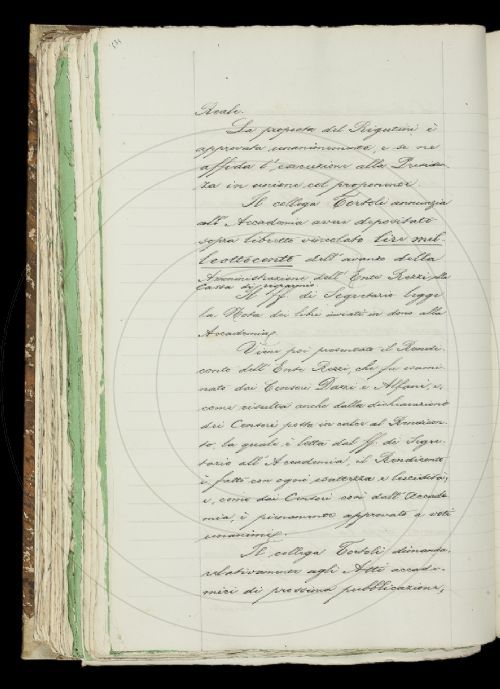 Reale.
La proposta del Rigutini è
approvata unanimemente, e se ne
affida l'esecuzione alla Presiden-
za in unione col proponente.
Il collega Tortoli annunzia
all'Accademia avere depositato
sopra libretto vincolato lire mil-
leottocento dell'avanzo della
Amministrazione dell'Ente Rezzi alla
Cassa di risparmio.
Il ff. di Segretario legge
la Nota dei libri inviati in dono alla
Accademia.
Viene poi presentato il Rendi-
conto dell'Ente Rezzi, che fu esami-
nato dai Censori Dazzi e Alfani, e,
come risulta anche dalla dichiarazione
dei Censori posta in calce al Rendicon-
to, la quale è letta dal ff. di Segre-
tario all'Accademia, il Rendiconto
è fatto con ogni esattezza e lucidità;
e, come dai Censori così dall'Accade-
mia, è pienamente approvato a voti
unanimi.
Il collega Tortoli dimanda,
relativamente agli Atti accade-
mici di prossima pubblicazione,